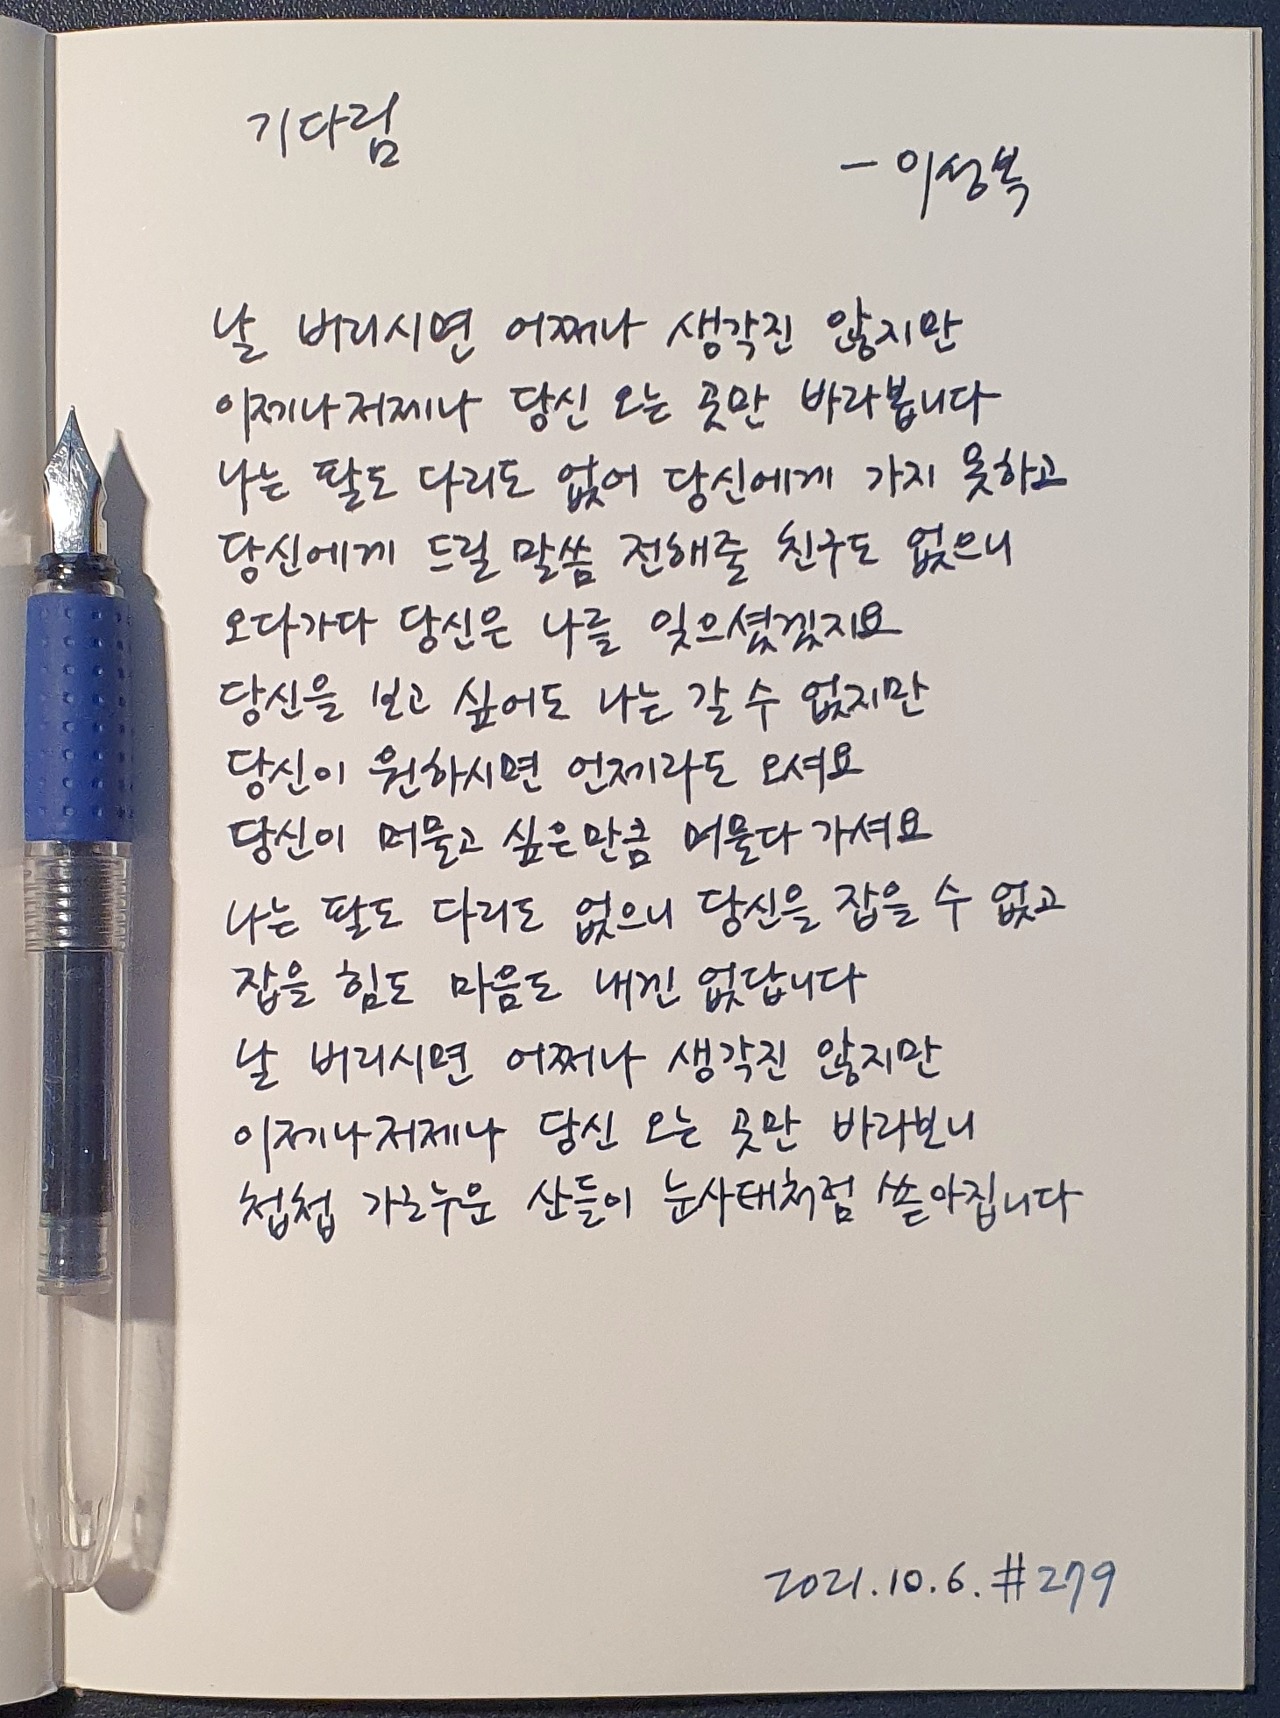 기다림
- 이성복
날 버리시면 어쩌나 생각진 않지만
이제나저제나 당신 오는 곳만 바라봅니다
나는 팔도 다리도 없어 당신에게 가지 못하고
당신에게 드릴 말씀 전해줄 친구도 없으니
오다가다 당신은 나를 잊으셨겠지요
당신을 보고 싶어도 나는 갈 수 없지만
당신이 원하시면 언제라도 오셔요
당신이 머물고 싶은만큼 머물다 가셔요
나는 팔도 다리도 없으니 당신을 잡을 수 없고
잡을 힘도 마음도 내겐 없답니다
날 버리시면 어쩌나 생각진 않지만
이제나저제나 당신 오는 곳만 바라보니
첩첩 가로누운 산들이 눈사태처럼 쏟아집니다
2021.10.6. #279